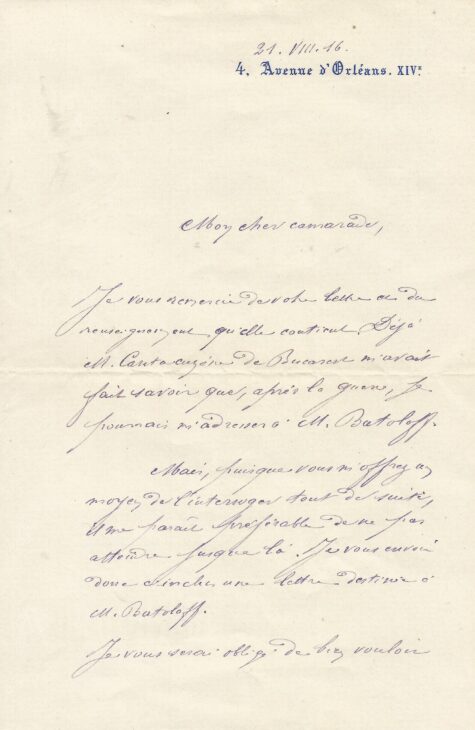 21. VIII. 16.
4, Avenue d'Orléans. XIVe
Mon cher camarade,
Je vous remercie de votre lettre et du
renseignement qu'elle contient. Déjà
M. Cantacuzène de Bucarest m'avait
fait savoir que, après la guerre, je
pourrais m'adresser à M. Batoloff.
Mais, puisque vous m'offrez un
moyen de l'interroger tout de suite,
il me paraît préférable de ne pas
attendre jusque là. Je vous envoie
donc ci-inclus une lettre destinée à
M. Batoloff.
Je vous serai obligé de bien vouloir